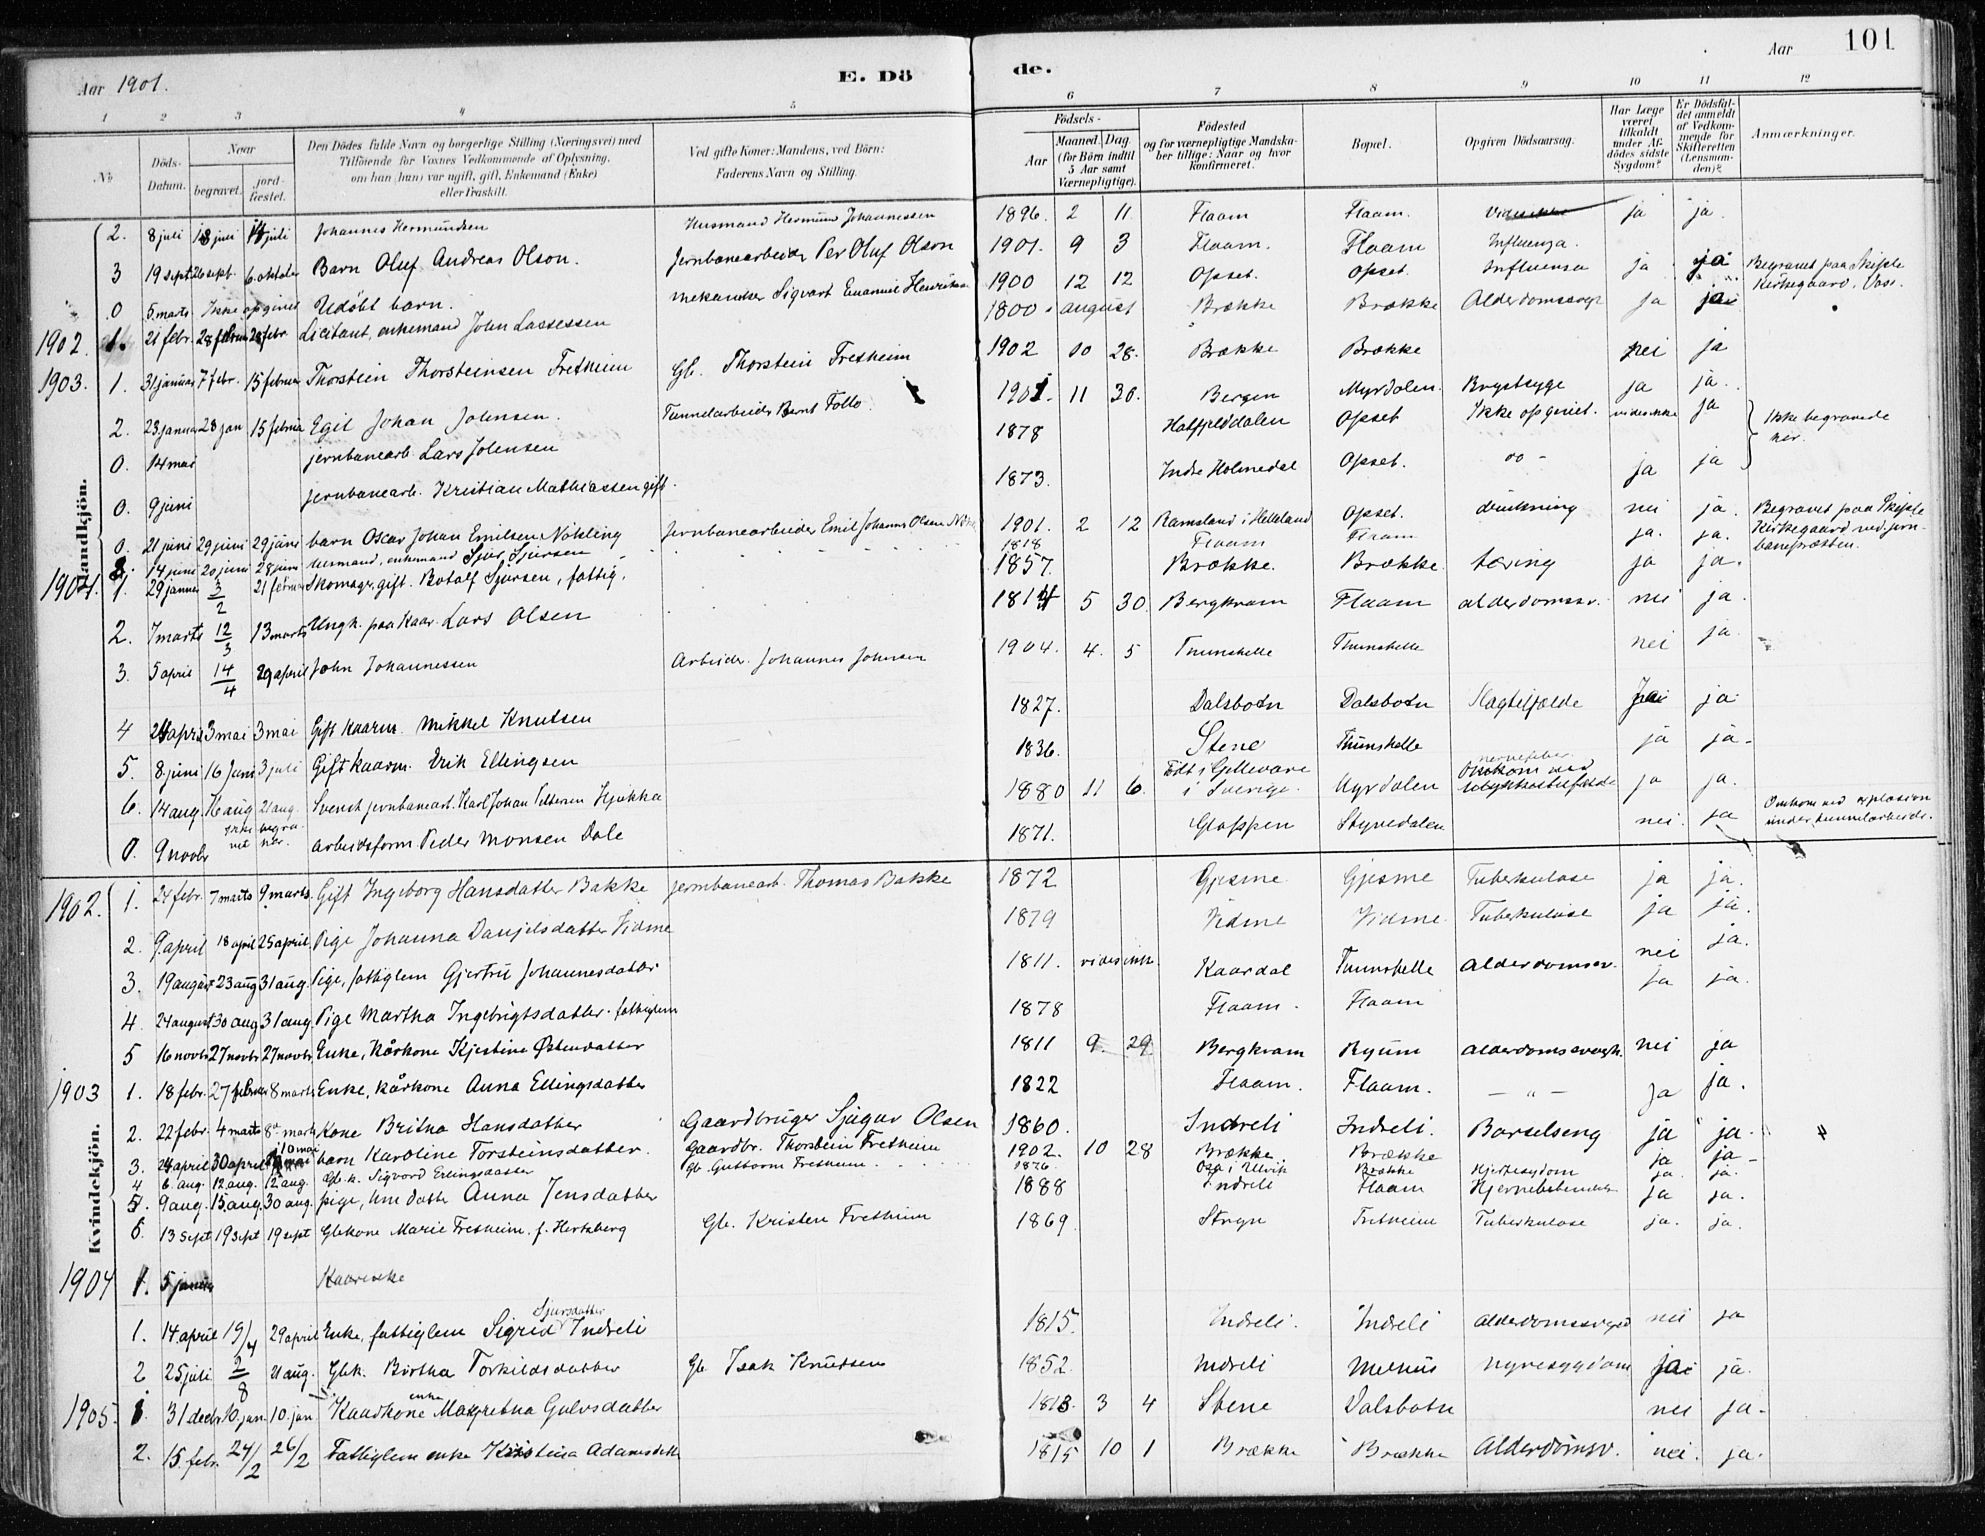 Aar 1901.
E. Dö
de.
Aar
101
1 2 3 4 5 6 7 8 9 10 11 12
№
Döds-Datum.
Naar
begravet.
jord-fæstet.
Den Dödes fulde Navn og borgerlige Stilling (Næringsvei) med
Tilföiende for Voxnes Vedkommende af Oplysning,
om han (hun) var ugift, gift, Enkemand (Enke)
eller fraskilt.
Ved gifte Koner: Mandens, ved Börn:
Faderens Navn og Stilling.
Födsels-
Aar
Maaned. Dag.
(for Börn indtil
5 Aar samt
Værnepligtige).
Födested
og for værnepligtige Mandska-
ber tillige: Naar og hvor
konfirmeret.
Bopæl.
Opgiven Dödsaarsag.
Har Læge
været
tilkaldt
under Af-
dödes sidste
Sygdom?
Er Dödsfal-
det anmeldt
af Vedkom-
mende for
Skifteretten
(Lensman-
den)?
Anmærkninger.
Mandkjön.
2. 8 juli 13 juli 14 juli Johannes Hermundsen Husmand Hermund Johannessen 1896. 2 11 Flaam Flaam. Vides ikke ja ja.
3 19 sept 26 sept. 6. oktober Barn Oluf Andreas Olson. Jernbanearbeider Per Oluf Olson 1901. 9 3 Flaam. Flaam Influenza.
0 5. marts Ikke opgivet Udöbt barn. Mekaniker Sigvart Emanuel Henriksen 1900 12 12 Opset. Opset. Influensa ja ja Begravet paa Skiple Kirkegaard, Voss.
1902. 1. 21 febr. 28 februar 28 febr Licitant, enkemand John Lassessen 1800 i august Brække Brække Alderdomssvgh ja ja
1903. 1. 31 januar 7 febr. 15 februar Thorstein Thorsteinsen Fretheim Gb. Thorstein Fretheim 1902 10 28. Brække Brække nei ja
2. 23 januar 28 jan 15 februar Egil Johan Johnsen. Tunnelarbeider Bernt Follo. 1901. 11 30. Bergen Myrdalen. Brystsyge ja ja.
0. 14 mai jernbanearb. Lars Johnsen 1878 Hatfjelddalen Opset Ikke opgivet. vides ikke ja Ikke begravede her.
0. 9 juni jernbanearb. Kristian Mathiassen gift. 1873. Indre Holmedal Opset. do - ja ja
0. 21 juni 29 juni 29 juni barn Oscar Johan Emilsen Nökling Jernbanearbeider Emil Johannes Olsen 1901. 2 12 Ramsland i Helleland Opset. drukning nei ja. Begravet paa Skiple Kirkegaard ved jernbanepræsten.
14 juni 20 juni 28 juni Husmand, enkemand Sjur Sjursen 1818 Flaam Flaam ja. ja.
1904. 1. 29 januar 3/2 21 februar Skomager, gift. Botolf Sjursen, fattig. 1857. Brække. Brække. tæring ja ja.
2. 7 marts 12/3 13 marts Ungk. paa Kaar. Lars Olsen 1814 5 30 Bergkvam Flaam alderdomssv. nei ja.
3. 5 april 14/4 29 april John Johannessen Arbeider. Johannes Johnsen 1904. 4. 5 Thunshelle Thunshelle nei ja.
4 24 april 3 mai 3 mai Gift kaarm. Mikkel Knutsen 1827. Dalsbotn Dalsbotn Slagtilfælde ja ja.
5. 8. juni 16 juni 3 juli Gift kaarm. Erik Ellingsen 1836. Stene Thunshelle ja ja.
6. 14 aug. 16 aug 21 aug. Svensk jernbanearb. Karl Johan Pettersen Hjukka 1880 11 6. Födt i Gellevare i Sverige. Myrdalen nervefeber Omkom ved ulykkestilfælde ja ja.
0. 9 novbr ikke begravet her. arbeidsform. Peder Monsen Dale 1871. Gloppen Styvedalen nei. ja Omkom ved explosion under tunnelarbeide.
Kvindekjön.
1902. 1. 24 febr. 7 marts 9 marts. Gift Ingeborg Hansdatter Bakke jernbanearb. Thomas Bakke 1872 Gjesme Gjesme Tuberkulose ja ja.
2. 9 april 18 april 25 april. Pige Johanna Danjelsdatter Vidme 1879 Vidme Vidme. Tuberkulose ja ja.
3. 19 august 23 aug 31 aug. Pige, fattiglem Gjertrud Johannesdatter 1811. vides ikke. Kaardal Tunshelle alderdomssv. nei ja.
4. 24 august 30 aug 31 aug. Pige Martha Ingebrigtsdatter. fattiglem 1878 Flaam. Flaam ja ja.
5 16 novbr 27 novbr 27 novbr. Enke, kårkone Kjestine Østensdatter 1811 9. 29. Bergkvam Ryum alderdomssvagh. nei ja
1903 1. 18 febr. 27 februar 8 marts Enke, kårkone Anna Ellingsdatter 1822 Flaam. Flaam. - " - ja ja.
2. 22 febr. 4 marts 8 marts Kone Britha Hansdatter Gaardbruger Sjugur Olsen 1860. Indreli Indreli. Barselseng ja ja.
3. 24 april 30 april 10 mai barn Karoline Torsteinsdatter. Gaardbr. Thorstein Fretheim 1902. 10 28 Brække. Brække ja ja
4 6. aug. 12. aug. 12 aug. Gb. k. Sigvord Erlingsdatter Gb. Guttorm Fretheim. 1876 Osa i Ulvik Brække Hjertesygdom ja. ja.
5. 9 aug. 15. aug. 30 aug. pige, hmdatt. Anna Jensdatter 1888 Indreli Flaam ja ja.
6. 13 sept 19 sept 19 sept Gbkone Marie Fretheim. f. Hertzberg Gb. Kristen Fretheim 1869. Stryn Fretheim Tuberkulose ja. ja.
1904 1. 5 januar Kaarenke
1. 14 april 19/4 29 april Enke, fattiglem Sigrid Sjursdatter Indreli 1815. Indreli. Indreli alderdomssvaghed nei ja
2 25 juli 2/8 21 aug. Gbk. Birtha Torkildsdatter Gb. Isak Knudsen 1852. Indreli Melhus nyresygdom ja ja.
1905. 1. 31 decbr 10. jan. 10. jan Kaadkone enke Magretha Gulvsdatter 1813. 3 4 Stene Dalsbotn nei ja.
2. 15. febr. 24/2 26/2 Fattiglem enke Kristina Adamsdatt 1815 10 1 Brække Brække Alderdomsv. nei. ja.